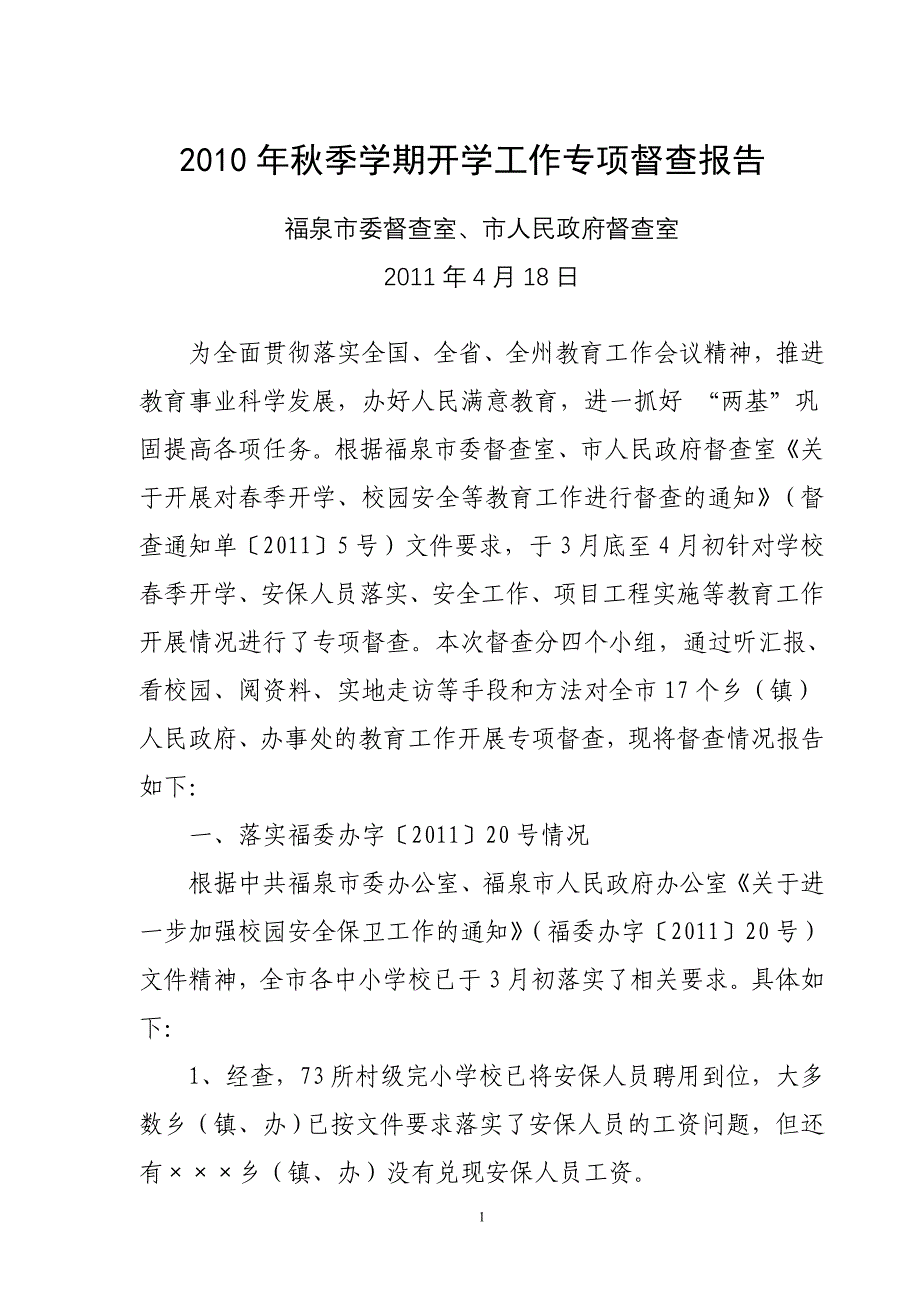 2010 年秋季学期开学工作专项督查报告
福泉市委督查室、市人民政府督查室
2011 年 4 月 18 日
为全面贯彻落实全国、全省、全州教育工作会议精神，推进
教育事业科学发展，办好人民满意教育，进一抓好 “两基”巩
固提高各项任务。根据福泉市委督查室、市人民政府督查室《关
于开展对春季开学、校园安全等教育工作进行督查的通知》（督
查通知单〔2011〕5 号）文件要求，于 3 月底至 4 月初针对学校
春季开学、安保人员落实、安全工作、项目工程实施等教育工作
开展情况进行了专项督查。本次督查分四个小组，通过听汇报、
看校园、阅资料、实地走访等手段和方法对全市 17 个乡（镇）
人民政府、办事处的教育工作开展专项督查，现将督查情况报告
如下：
一、落实福委办字〔2011〕20 号情况
根据中共福泉市委办公室、福泉市人民政府办公室《关于进
一步加强校园安全保卫工作的通知》（福委办字〔2011〕20 号）
文件精神，全市各中小学校已于 3 月初落实了相关要求。具体如
下：
1、经查，73 所村级完小学校已将安保人员聘用到位，大多
数乡（镇、办）已按文件要求落实了安保人员的工资问题，但还
有×××乡（镇、办）没有兑现安保人员工资。
1